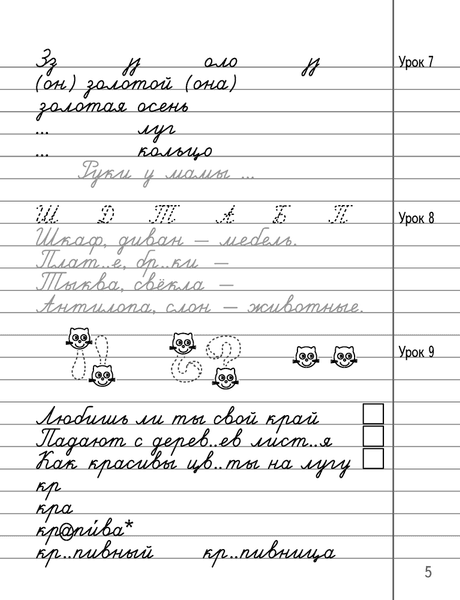 Зз зз оло зз Урок 7
(он) золотой (она)
золотая осень
... луг
... кольцо
Руки у мамы ...
Ш Д Т А Б П Урок 8
Шкаф, диван – мебель.
Плат..е, бр..ки –
Тыква, свёкла –
Антилопа, слон – животные.
Урок 9
Любишь ли ты свой край
Падают с дерев..ев лист..я
Как красивы цв..ты на лугу
кр
кра
кр@пи́ва*
кр..пивный кр..пивница
5